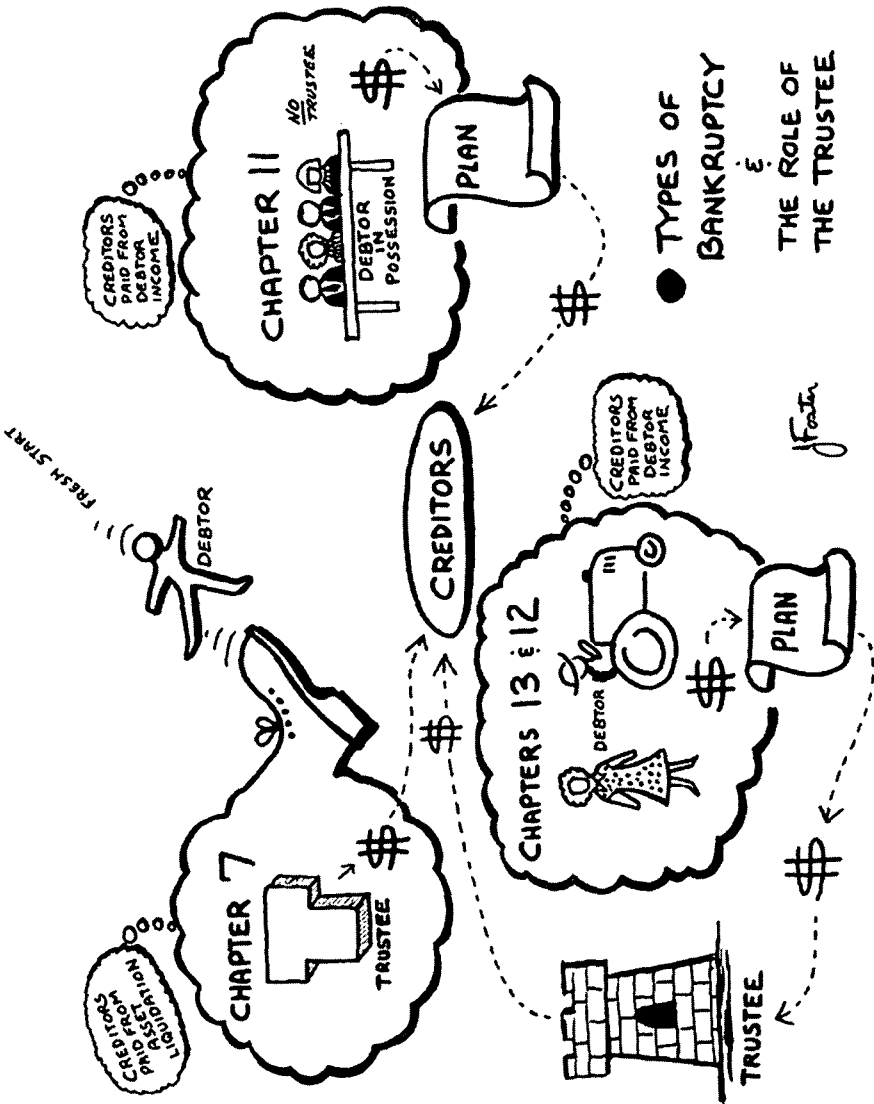 CREDITORS
PAID FROM
ASSET
LIQUIDATION
CHAPTER 7
TRUSTEE
$
DEBTOR
FRESH START
CREDITORS
PAID FROM
DEBTOR
INCOME
CHAPTER 11
NO
TRUSTEE
DEBTOR
IN
POSSESSION
$
PLAN
$
CREDITORS
$
CHAPTERS 13 & 12
DEBTOR
$
PLAN
CREDITORS
PAID FROM
DEBTOR
INCOME
$
TRUSTEE
TYPES OF
BANKRUPTCY
&
THE ROLE OF
THE TRUSTEE
JFoster